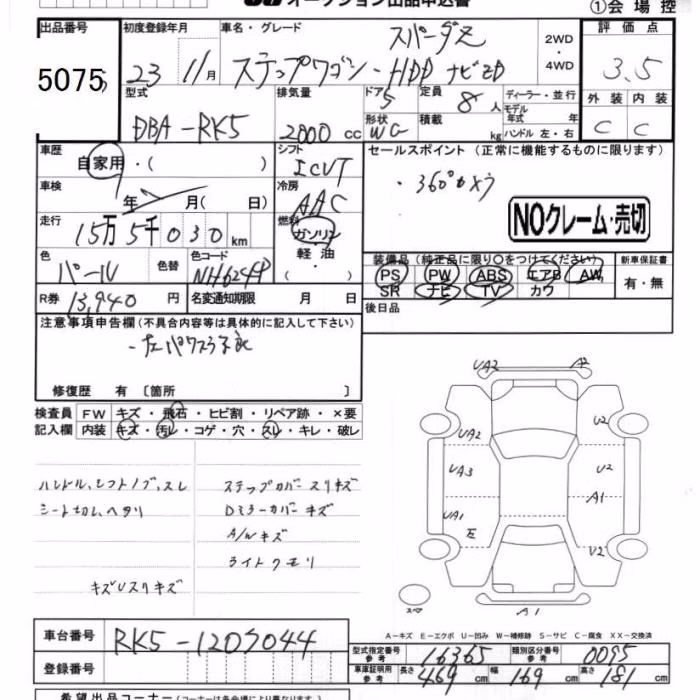 オークション出品申込書
①会場控
出品番号 初度登録年月 車名・グレード 評価点
5075 23 11月 スパーダZ
ステップワゴン - HDDナビED 2WD・4WD 3.5
型式 排気量 ドア 定員 ディーラー・並行 外装 内装
5 8人 モデル年式 年式
DBA-RK5 2000cc 形状 WG 積載 kg ハンドル 左・右 C C
車歴 シフト セールスポイント (正常に機能するものに限ります)
自家用・( ) ICVT ・360°カメラ
車検 年 月( 日) 冷房 AAC
NOクレーム・売切
走行 15万5千030km 燃料 ガソリン
軽油・( )
色 パール 色替 色コード NH624P
装備品 (純正品に限り○をつけてください) 新車保証書
PS PW ABS エアB AW 有・無
SR ナビ TV カワ
R券 13,940円 名変通知期限 月 日
後日品
注意事項申告欄 (不具合内容等は具体的に記入して下さい)
修復歴 有 〔箇所 〕
検査員 FW キズ・飛石・ヒビ割・リペア跡・×要
記入欄 内装 キズ・汚レ・コゲ・穴・スレ・キレ・破レ
ハンドル、シフトノブ、スレ ステップカバースリキズ
Dミラーカバーキズ
A/Wキズ
ライトクモリ
キズUスリキズ
UA2 A2
UA2 U2
UA3 U2
A1
UA1
E U2
スペア A1
A-キズ E-エクボ U-凹み W-補修跡 S-サビ C-腐食 XX-交換済
車台番号 RK5-1207044
型式指定番号 参考 16365 類別区分番号 参考 0095
登録番号 車庫証明用 参考 長さ 469cm 幅 169cm 高さ 181cm
希望出品コーナー (コーナーは各会場により異なります)